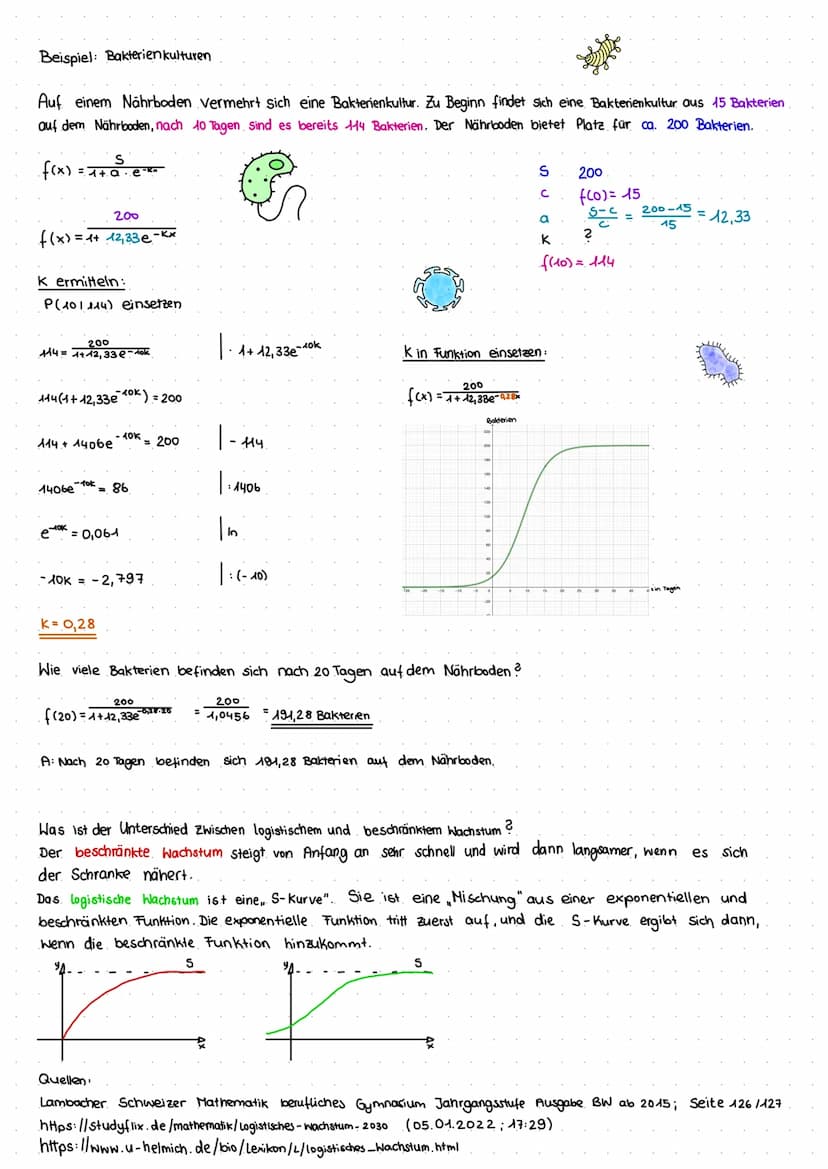 Beispiel: Bakterienkulturen
Auf einem Nährboden vermehrt sich eine Bakterienkultur. Zu Beginn findet sich eine Bakterienkultur aus 15 Bakterien
auf dem Nährboden, nach 10 Tagen sind es bereits 114 Bakterien. Der Nährboden bietet Platz für ca. 200 Bakterien.
f(x) = S / 1+a·e^-kx
S 200
C f(0)= 15
a S-C/C = 200-15/15 = 12,33
K ?
f(10) = 114
f(x) = 200 / 1+ 12,33e^-Kx
K ermitteln:
P(10|114) einsetzen
114 = 200 / 1+12,33e^-10K | · 1+12,33e^-10K
114(1+12,33e^-10K) = 200
114 + 1406e^-10K = 200 | - 114
1406e^-10K = 86 | : 1406
e^-10K = 0,061 | ln
-10K = -2,797 | : (-10)
K = 0,28
K in Funktion einsetzen:
f(x) = 200 / 1+12,33e^-0,28x
Bakterien
x in Tagen
Wie viele Bakterien befinden sich nach 20 Tagen auf dem Nährboden?
f(20) = 200 / 1+12,33e^-0,28·20 = 200 / 1,0456 = 191,28 Bakterien
A: Nach 20 Tagen befinden sich 191,28 Bakterien auf dem Nährboden.
Was ist der Unterschied zwischen logistischem und beschränktem Wachstum?
Der beschränkte Wachstum steigt von Anfang an sehr schnell und wird dann langsamer, wenn es sich
der Schranke nähert.
Das logistische Wachstum ist eine „S-Kurve". Sie ist eine „Mischung" aus einer exponentiellen und
beschränkten Funktion. Die exponentielle Funktion tritt zuerst auf, und die S-Kurve ergibt sich dann,
wenn die beschränkte Funktion hinzukommt.
y S x
y S x
Quellen:
Lambacher Schweizer Mathematik berufliches Gymnasium Jahrgangsstufe Ausgabe BW ab 2015; Seite 126/127
https://studyflix.de/mathematik/logistisches-wachstum-2030 (05.01.2022; 17:29)
https://www.u-helmich.de/bio/Lexikon/L/logistisches_Wachstum.html